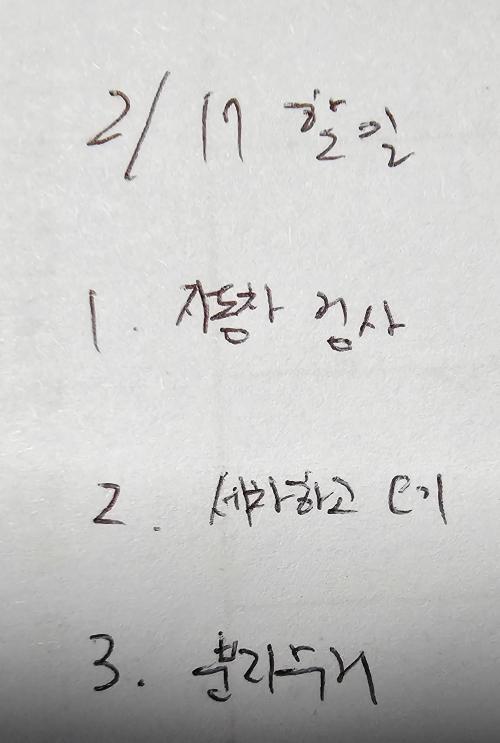 2/17 할일
1. 자동차 검사
2. 세차하고
3. 분리수거